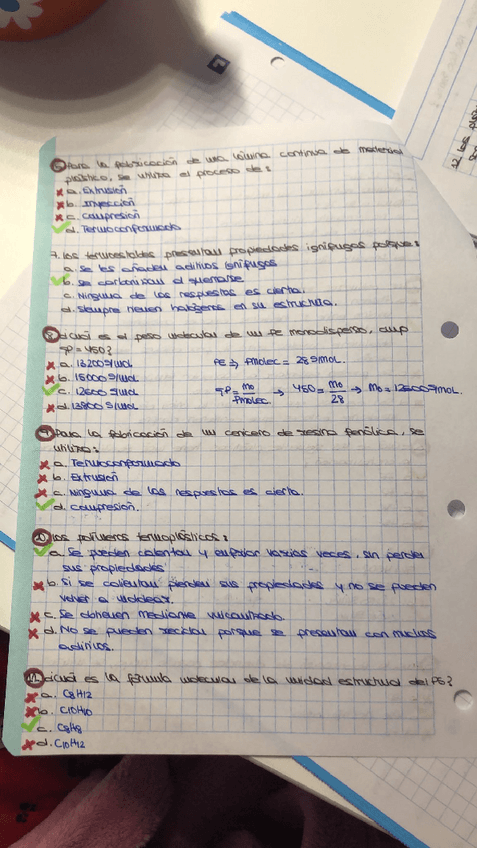 6 Para la fabricación de una lámina continua de material
plástico, se utiliza el proceso de:
a. Extrusión
b. Inyección
c. Compresión
d. Termoconformado
7. Los termoestables presentan propiedades ignífugas porque:
a. Se les añaden aditivos ignífugos
b. Se carbonizan al quemarse
c. Ninguna de las respuestas es cierta.
d. Siempre tienen halógenos en su estructura.
8. ¿Cuál es el peso molecular de un PE monodisperso, cuyo
GP = 450?
a. 13200 g/mol
b. 15000 g/mol
c. 12600 g/mol
d. 13800 g/mol
PE → Pmolec = 28 g/mol.
GP = Mo / Pmolec → 450 = Mo / 28 → Mo = 12600 g/mol.
9 Para la fabricación de un cenicero de resina fenólica, se
utiliza:
a. Termoconformado
b. Extrusión
c. Ninguna de las respuestas es cierta.
d. Compresión.
10 Los polímeros termoplásticos:
a. Se pueden calentar y enfriar varias veces, sin perder
sus propiedades
b. Si se calientan pierden sus propiedades y no se pueden
volver a moldear.
c. Se obtienen mediante vulcanizado.
d. No se pueden reciclar porque se presentan con muchos
aditivos.
11 ¿Cuál es la fórmula molecular de la unidad estructural del PS?
a. C8H12
b. C10H10
c. C8H8
d. C10H12
12 Los